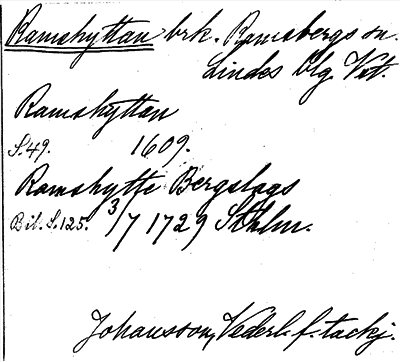 Ramshyttan brk. Ramsbergs sn.
Lindes blg Vstm.
Ramshyttan
S. 49. 1609.
Ramshytte Bergslags
Bil. S. 125. 3/7 1729 Sthlm.
Johansson, Vederl. f. tackj.